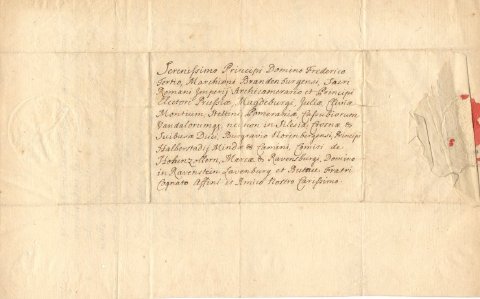 Serenissimo Principi Domino Frederico
Tertio, Marchioni Brandenburgensi, Sacri
Romani Imperij Archicamerario et Principi
Electori Prussiæ, Magdeburgi Juliæ Cliviæ
Montium, Stettini, Pomeraniæ Cassubiorum
Vandalorumq; necnon in Silesia, Crosnæ &
Suibusiæ Duci, Burgravio Norenbergensi, Principi
Halberstadij Mindæ & Camini, Comiti de
Hohenzollern, Marcæ & Ravensburgi, Domino
in Ravenstein Lavenburg et Butau. Fratri
Cognato Affini et Amico Nostro Carissimo.